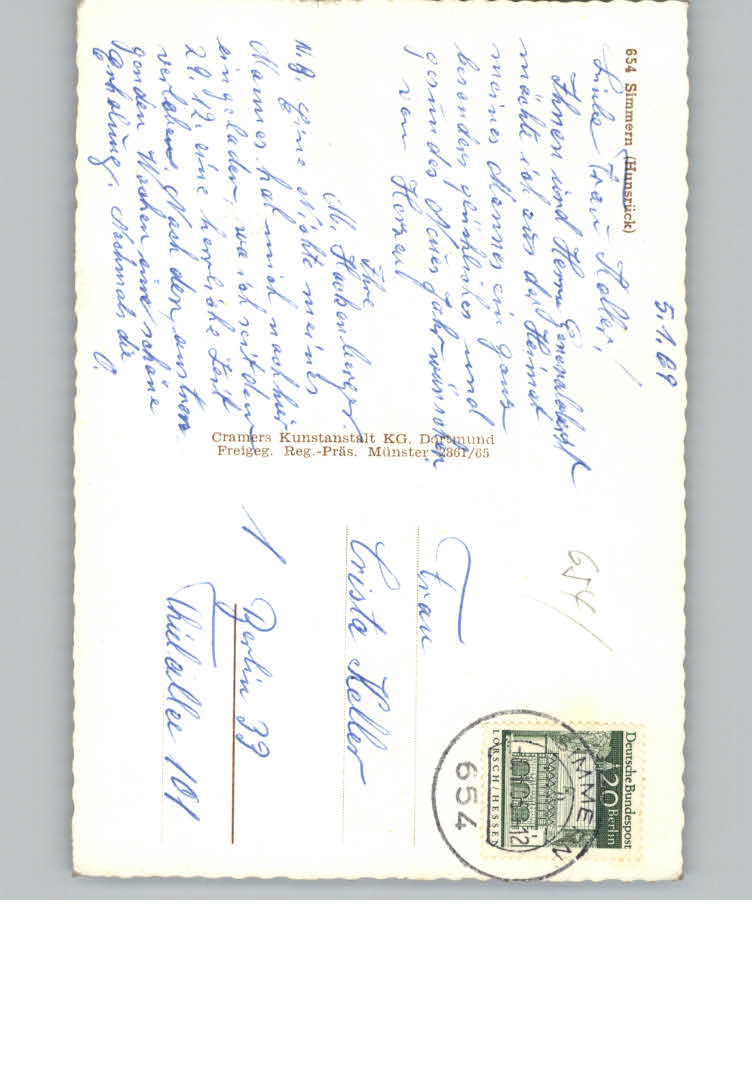 654 Simmern (Hunsrück)
5.1.69
Liebe Frau Keller,
Ihnen und Herrn Generaloberst
möchte ich aus der Heimat
meines Mannes ein ganz
besonders glückliches und
gesundes Neues Jahr wünschen
von Herzen
Ihre
M.
N.B. Eine Nichte meines
Mannes hat mich nach hier
eingeladen, wo ich seit dem
29.12. eine herrliche Zeit
verlebe. Nach den anstren-
genden Wochen eine schöne
Erholung. Nochmals die
O.
Cramers Kunstanstalt KG, Dortmund
Freigeg. Reg.-Präs. Münster 2861/65
654/
Frau
Crista Keller
1 Berlin 33
Thielallee 101
Deutsche Bundespost
20 Berlin
LORSCH/HESSEN
SIMMERN
654